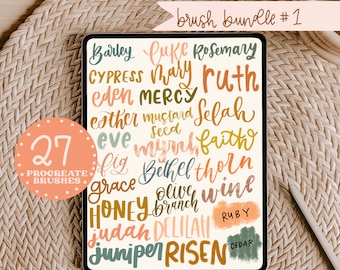 brush bundle #1
Barley luke Rosemary
CYPRESS Mary ruth
eden MERCY
esther mustard seed Selah
eve myrrh faith
fig Bethel thorn
grace olive branch wine
HONEY
judah DELILAH RUBY
juniper RISEN CEDAR
27
PROCREATE
BRUSHES